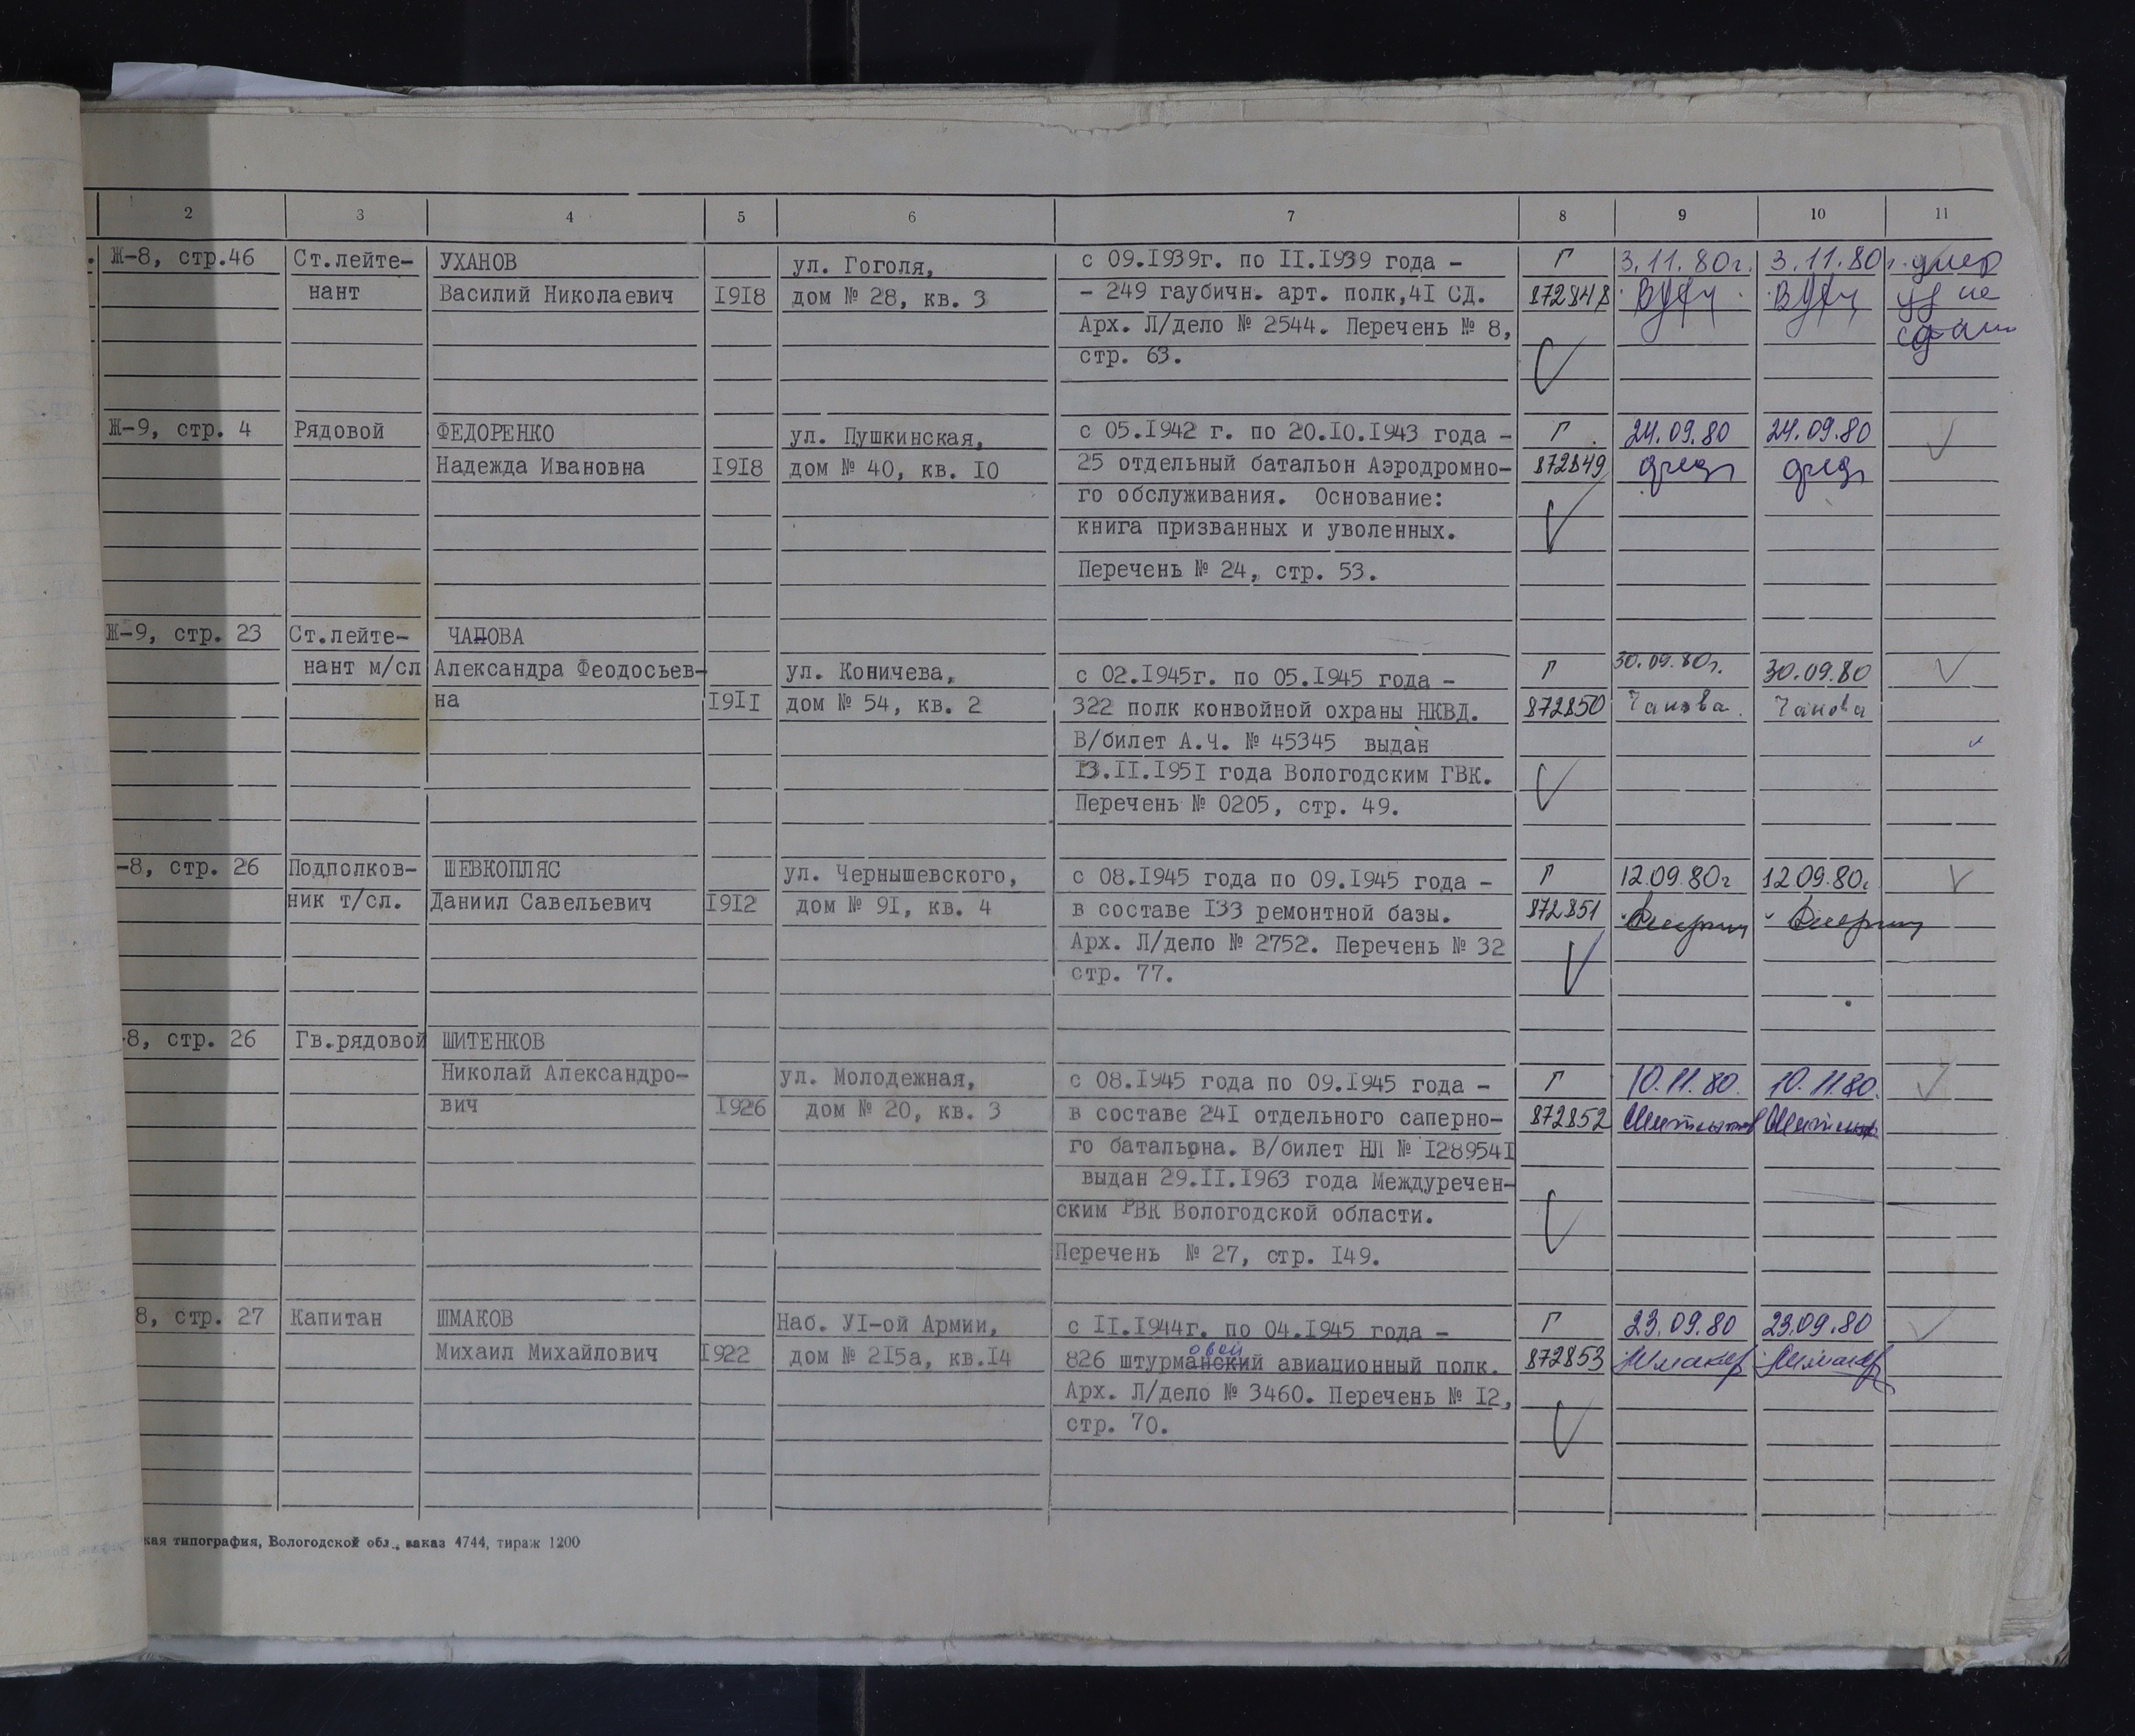 2 3 4 5 6 7 8 9 10 11
Ж-8, стр.46 Ст.лейте- УХАНОВ ул. Гоголя, с 09.I939г. по II.I939 года - Г 3.11.80г. 3.11.80г. умер
нант Василий Николаевич I9I8 дом № 28, кв. 3 - 249 гаубичн. арт. полк,4I СД. 872848 уд не
Арх. Л/дело № 2544. Перечень № 8,
стр. 63.
Ж-9, стр. 4 Рядовой ФЕДОРЕНКО ул. Пушкинская, с 05.I942 г. по 20.I0.I943 года - Г 24.09.80 24.09.80
Надежда Ивановна I9I8 дом № 40, кв. I0 25 отдельный батальон Аэродромно- 872849
го обслуживания. Основание:
книга призванных и уволенных.
Перечень № 24, стр. 53.
Ж-9, стр. 23 Ст.лейте- ЧАПОВА
нант м/сл Александра Феодосьев- ул. Коничева, с 02.I945г. по 05.I945 года - Г 30.09.80г. 30.09.80
на I9II дом № 54, кв. 2 322 полк конвойной охраны НКВД. 872850 Чапова Чапова
В/билет А.Ч. № 45345 выдан
I3.II.I95I года Вологодским ГВК.
Перечень № 0205, стр. 49.
-8, стр. 26 Подполков- ШЕВКОПЛЯС ул. Чернышевского, с 08.I945 года по 09.I945 года - Г 12.09.80г 12.09.80г
ник т/сл. Даниил Савельевич I9I2 дом № 9I, кв. 4 в составе I33 ремонтной базы. 872851
Арх. Л/дело № 2752. Перечень № 32
стр. 77.
-8, стр. 26 Гв.рядовой ШИТЕНКОВ
Николай Александро- ул. Молодежная, с 08.I945 года по 09.I945 года - Г 10.11.80. 10.11.80.
вич I926 дом № 20, кв. 3 в составе 24I отдельного саперно- 872852
го батальона. В/билет НЛ № I28954I
выдан 29.II.I963 года Междуречен-
ским РВК Вологодской области.
Перечень № 27, стр. I49.
8, стр. 27 Капитан ШМАКОВ Наб. УI-ой Армии, с II.I944г. по 04.I945 года - Г 23.09.80 23.09.80
овой
Михаил Михайлович I922 дом № 2I5а, кв.I4 826 штурманский авиационный полк. 872853 Шмаков Шмаков
Арх. Л/дело № 3460. Перечень № I2,
стр. 70.
кая типография, Вологодской обл., заказ 4744, тираж 1200